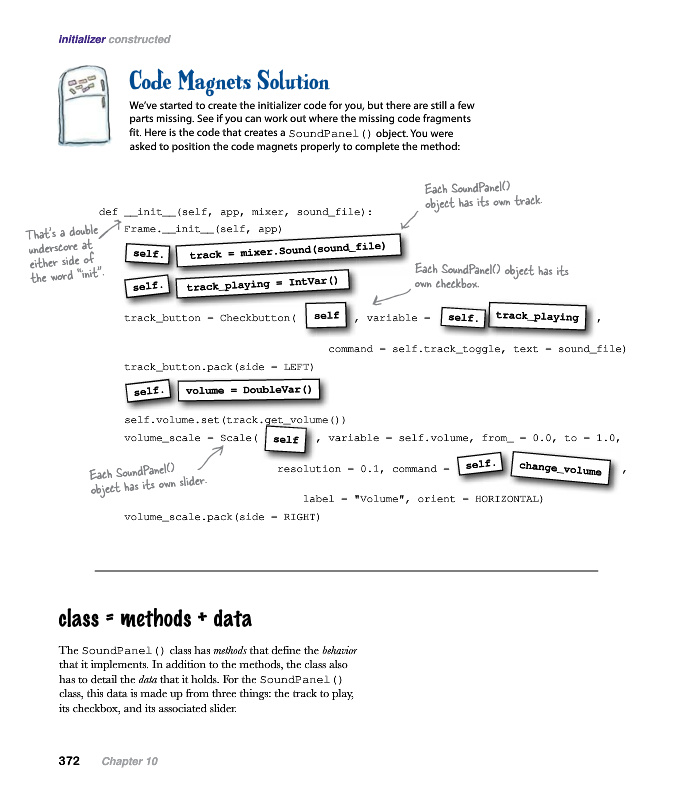 initializer constructed
Code Magnets Solution
We've started to create the initializer code for you, but there are still a few
parts missing. See if you can work out where the missing code fragments
fit. Here is the code that creates a SoundPanel() object. You were
asked to position the code magnets properly to complete the method:
Each SoundPanel()
object has its own track.
def __init__(self, app, mixer, sound_file):
That's a double
underscore at
either side of
the word "init".
Frame.__init__(self, app)
self. track = mixer.Sound(sound_file)
Each SoundPanel() object has its
own checkbox.
self. track_playing = IntVar()
track_button = Checkbutton( self , variable = self. track_playing ,
command = self.track_toggle, text = sound_file)
track_button.pack(side = LEFT)
self. volume = DoubleVar()
self.volume.set(track.get_volume())
volume_scale = Scale( self , variable = self.volume, from_ = 0.0, to = 1.0,
Each SoundPanel()
object has its own slider.
resolution = 0.1, command = self. change_volume ,
label = "Volume", orient = HORIZONTAL)
volume_scale.pack(side = RIGHT)
class = methods + data
The SoundPanel() class has methods that define the behavior
that it implements. In addition to the methods, the class also
has to detail the data that it holds. For the SoundPanel()
class, this data is made up from three things: the track to play,
its checkbox, and its associated slider.
372 Chapter 10